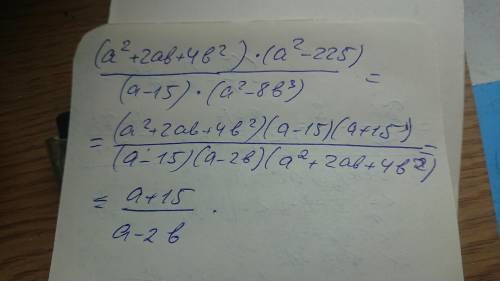 (a²+2ab+4b²)·(a²-225)
(a-15)·(a²-8b³)
=
= (a²+2ab+4b²)(a-15)(a+15)
(a-15)(a-2b)(a²+2ab+4b²)
=
= a+15
a-2b .